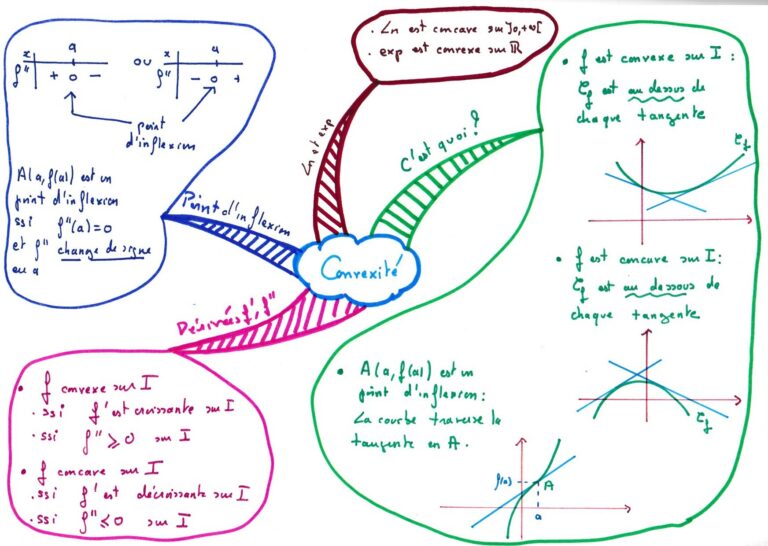 Convexité
Ln et exp
. Ln est concave sur ]0,+∞[
. exp est convexe sur ℝ
C'est quoi?
• f est convexe sur I :
𝒞f est au dessus de
chaque tangente
𝒞f
• f est concave sur I :
𝒞f est au dessous de
chaque tangente
𝒞f
• A(a, f(a)) est un
point d'inflexion :
La courbe traverse la
tangente en A.
f(a)
A
a
Point d'inflexion
x a
f'' + 0 -
ou
x a
f'' - 0 +
point
d'inflexion
A(a, f(a)) est un
point d'inflexion
ssi f''(a)=0
et f'' change de signe
en a
Dérivées f', f''
• f convexe sur I
. ssi f' est croissante sur I
. ssi f'' ⩾ 0 sur I
• f concave sur I
. ssi f' est décroissante sur I
. ssi f'' ⩽ 0 sur I